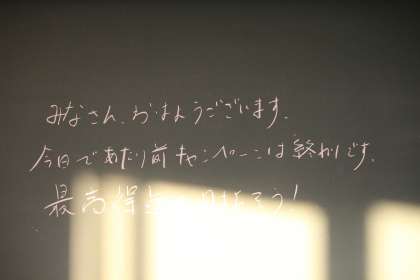 みなさん、おはようございます。
今日であたり前キャンペーンは終わりです。
最高得点 そう!